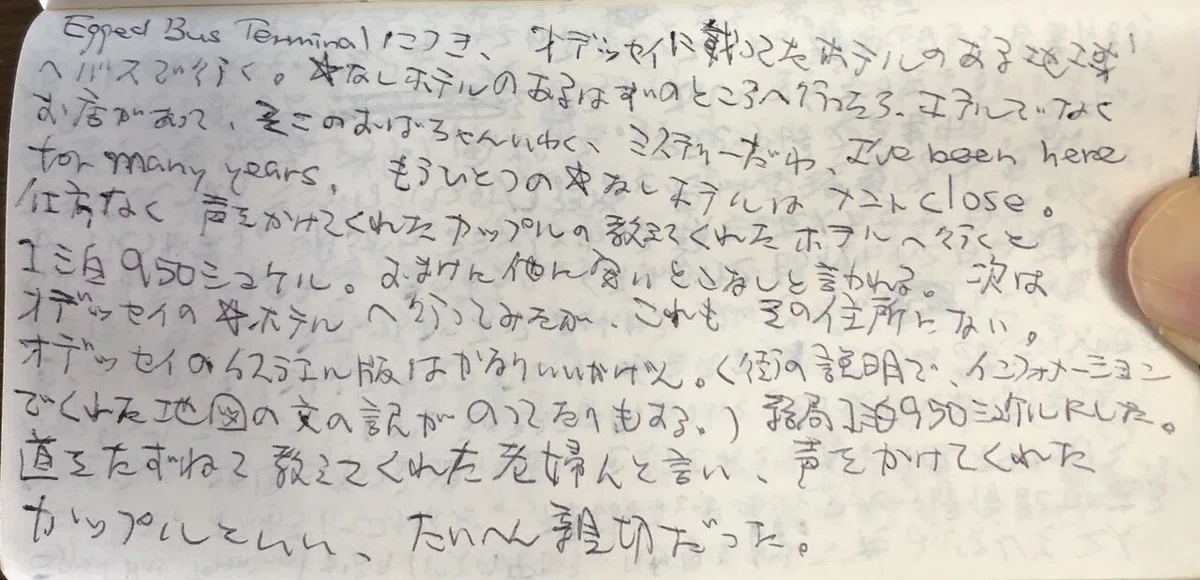 Egged Bus Terminalにつき、オデッセイに載ってたホテルのある地域
へバスで行く。☆なしホテルのあるはずのところへ行ったら、エテルでなく
お店があって、そこのおばちゃんいわく、ミステリーだわ、I've been here
for many years. もうひとつの☆なしホテルはナントclose。
仕方なく声をかけてくれたカップルの教えてくれたホテルへ行くと
1泊950シェケル。おまけに他に安いとこなしと言われる。次は
オデッセイの☆ホテルへ行ってみたが、これもその住所にない。
オデッセイのイスラエル版はかなりいいかげん。(街の説明で、インフォメーション
でくれた地図の文の訳がのってたりもする。)結局1泊950シェケルにした。
道をたずねて教えてくれた老婦人と言い、声をかけてくれた
カップルといい、たいへん親切だった。